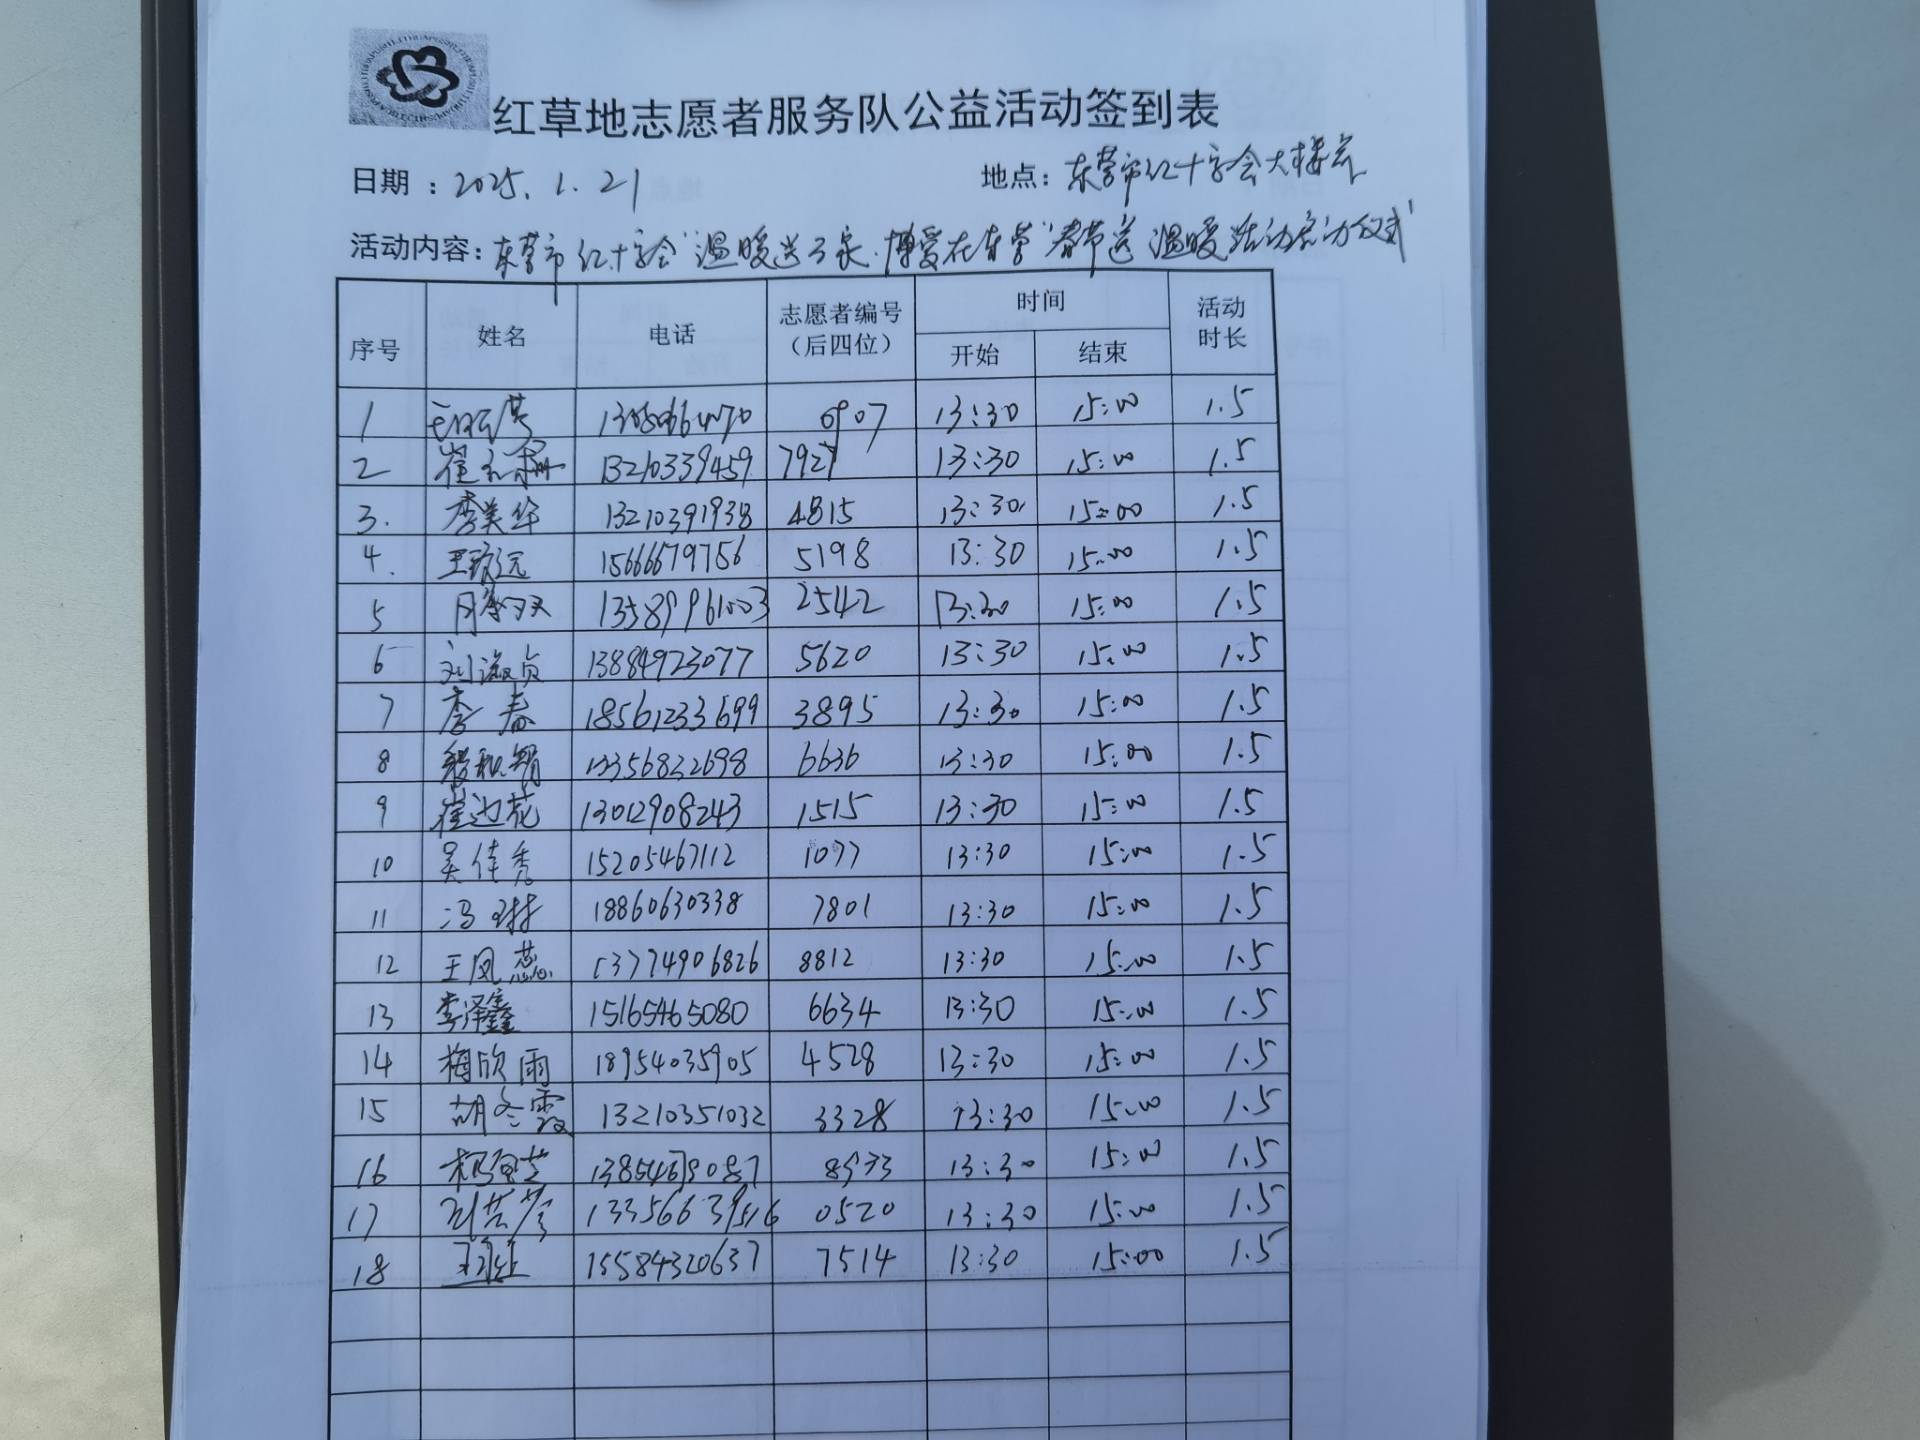 红草地志愿者服务队公益活动签到表
日期：2025.1.21 地点：东营市红十字会大楼前
活动内容：东营市红十字会“温暖送万家·博爱在东营”春节送温暖活动启动仪式
序号 姓名 电话 志愿者编号（后四位） 时间 活动时长
开始 结束
1 6907 13:30 15:00 1.5
2 13210339459 7927 13:30 15:00 1.5
3. 李美华 13210391938 4815 13:30 15:00 1.5
4. 15666679756 5198 13:30 15:00 1.5
5 13589961003 2542 13:30 15:00 1.5
6 刘淑贞 13884923077 5620 13:30 15:00 1.5
7 李春 18561233699 3895 13:30 15:00 1.5
8 13356832698 6636 13:30 15:00 1.5
9 崔迎花 13012908243 1515 13:30 15:00 1.5
10 吴佳秀 15205467112 1077 13:30 15:00 1.5
11 冯琳 18860630338 7801 13:30 15:00 1.5
12 王凤蕊 13774906826 8812 13:30 15:00 1.5
13 李泽鑫 15165465080 6634 13:30 15:00 1.5
14 梅欣雨 18954035905 4528 13:30 15:00 1.5
15 胡冬霞 13210351032 3328 13:30 15:00 1.5
16 8933 13:30 15:00 1.5
17 13356639516 0520 13:30 15:00 1.5
18 15584320637 7514 13:30 15:00 1.5